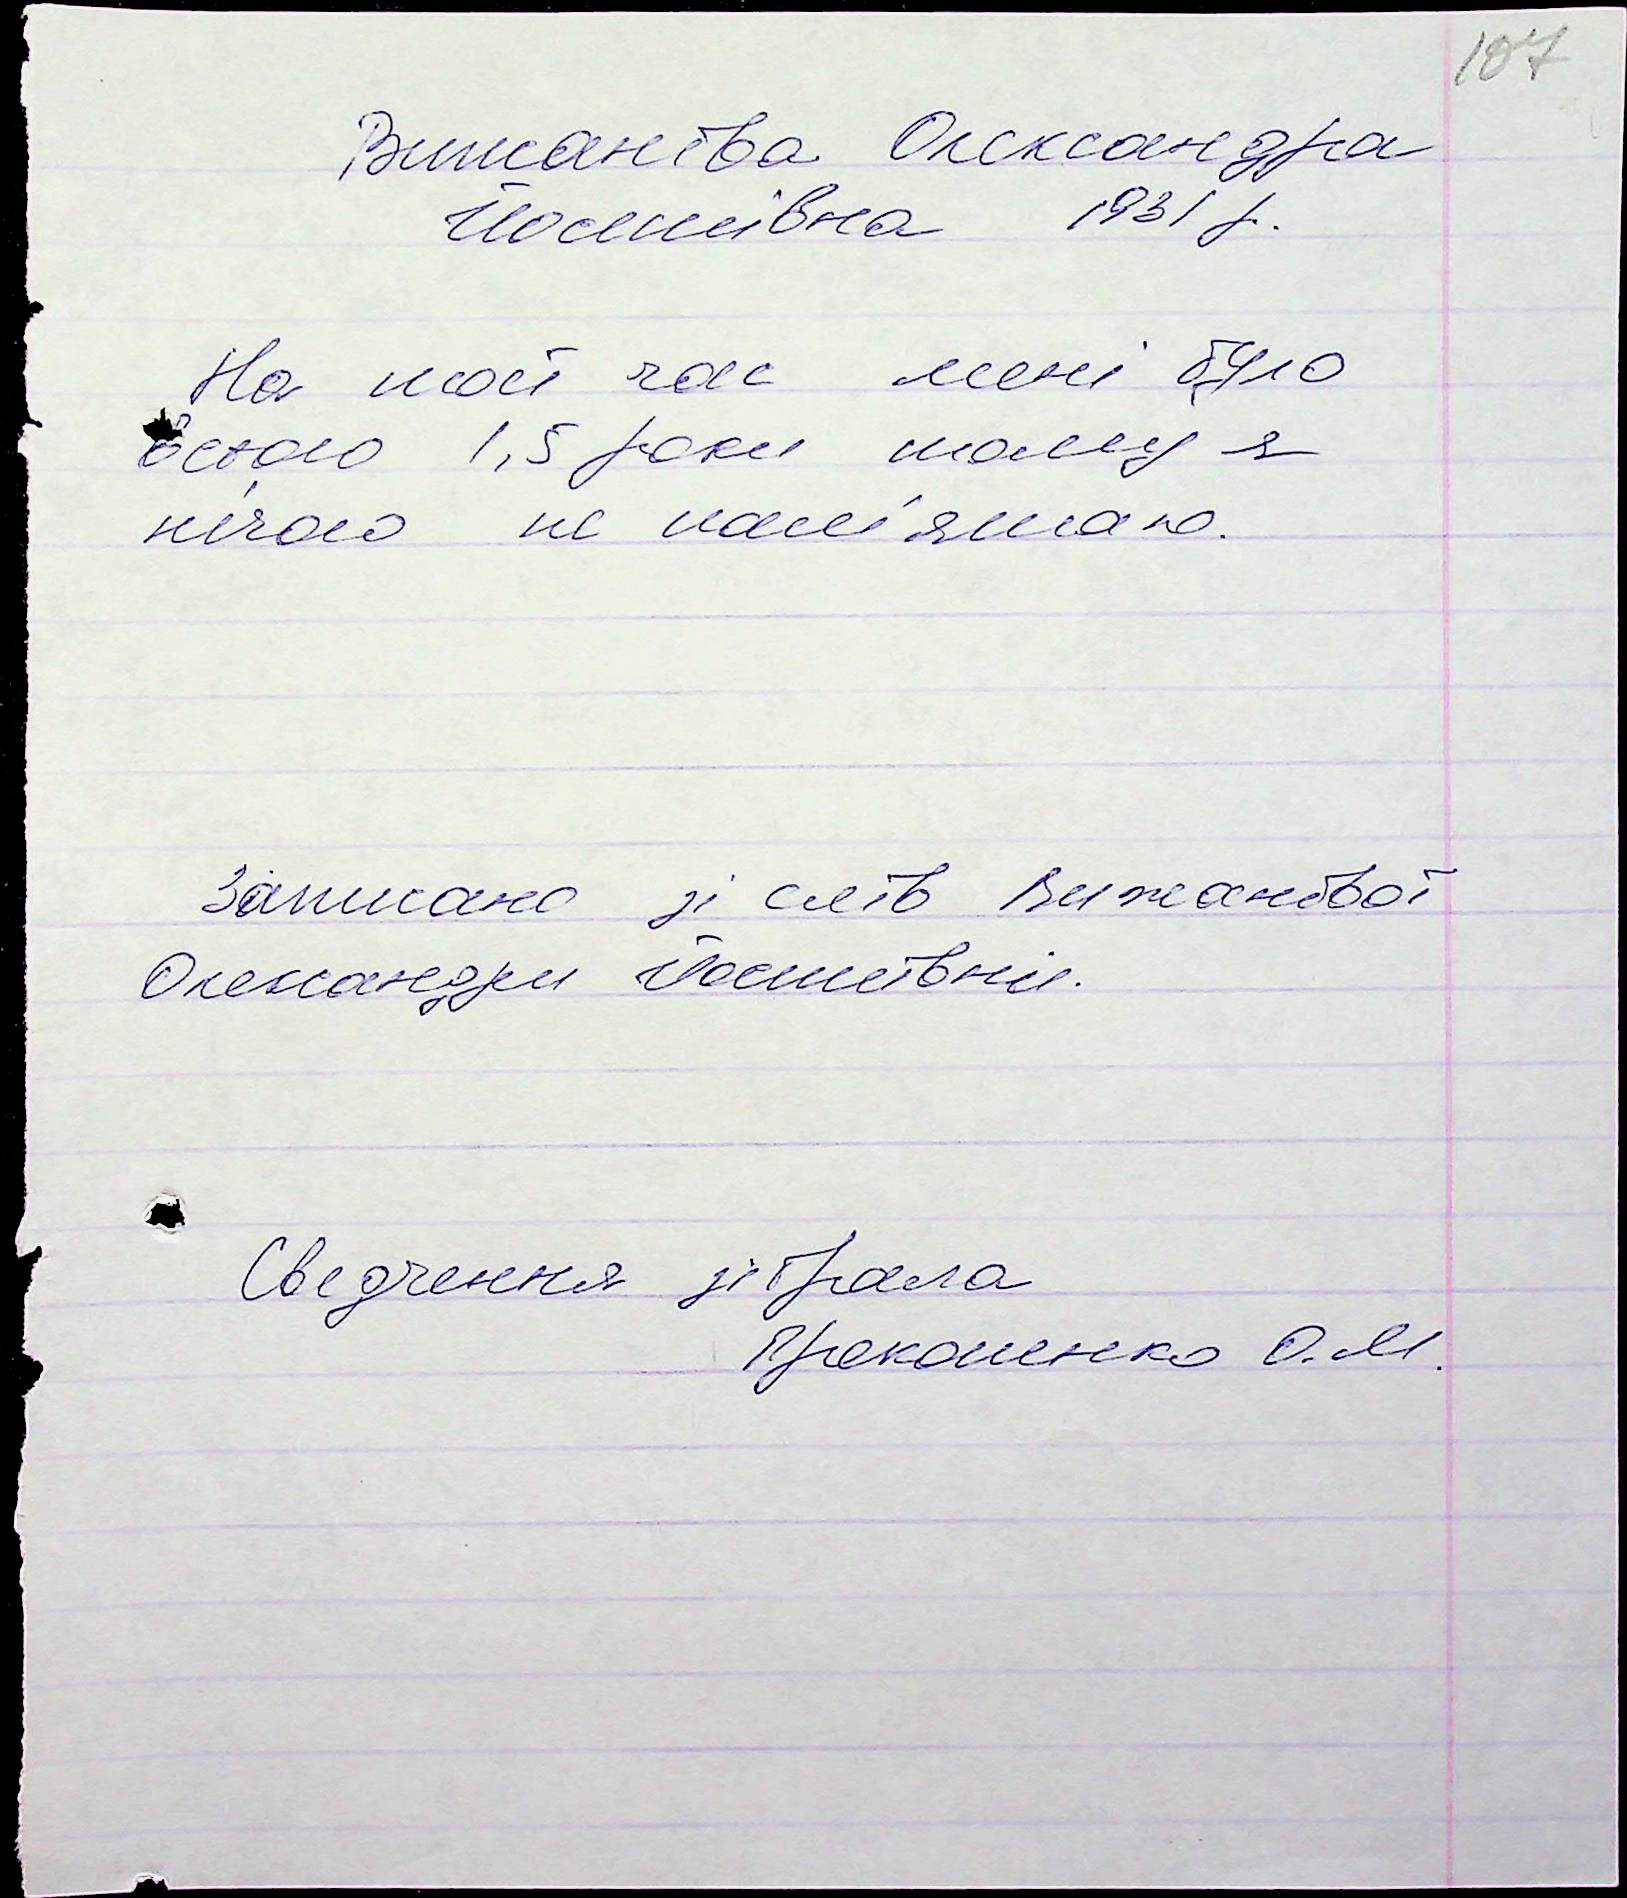 107
Вижанова Олександра
Йосипівна 1931 р.
На той час мені було
всього 1,5 роки тому я
нічого не пам'ятаю.
Записано зі слів Вижанової
Олександри Йосипівни.
Сведчення зібрала
Прокопенко О.М.